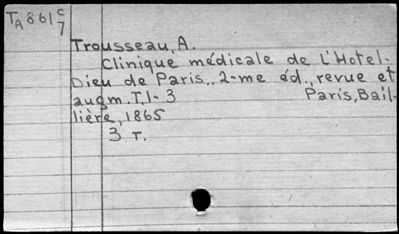 TA861 c/7
Trousseau, A.
Clinique médicale de l'Hotel-
Dieu de Paris.. 2-me éd., revue et
augm. T.1-3 Paris, Bail-
lière, 1865
3 T.